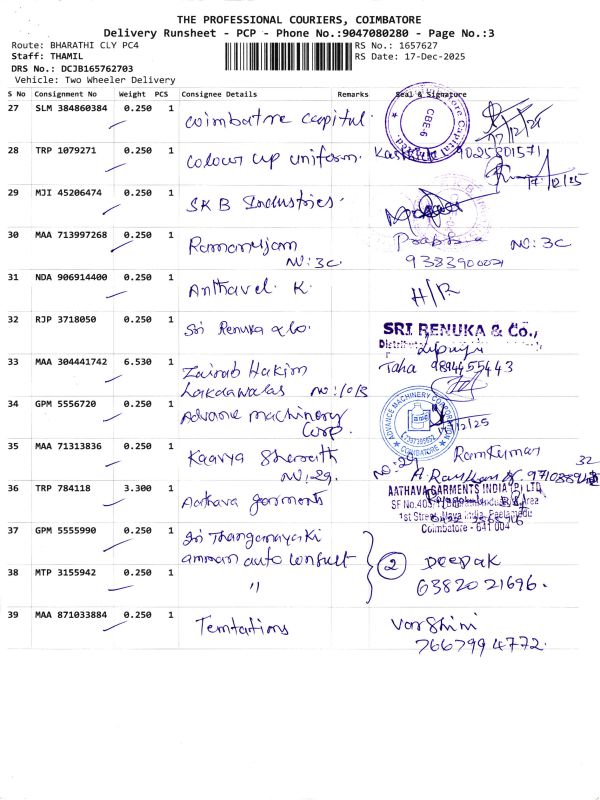 THE PROFESSIONAL COURIERS, COIMBATORE
Delivery Runsheet - PCP - Phone No.:9047080280 - Page No.:3
Route: BHARATHI CLY PC4
RS No.: 1657627
Staff: THAMIL
RS Date: 17-Dec-2025
DRS No.: DCJB165762703
Vehicle: Two Wheeler Delivery
S No Consignment No Weight PCS Consignee Details Remarks Seal & Signature
27 SLM 384860384 0.250 1 Coimbatore capital.
CBE-6
17/12/25
28 TRP 1079271 0.250 1 Colour up uniform. 9025801571
17/12/25
29 MJI 45206474 0.250 1 SKB Industries.
30 MAA 713997268 0.250 1 Ramanujam NO: 3C
NO: 3C. 9383900021
31 NDA 906914400 0.250 1 Anthavel. K. H/R
32 RJP 3718050 0.250 1 Sri Renuka & Co. SRI RENUKA & Co.,
33 MAA 304441742 6.530 1 Zainab Hakim Taha 9894455443
Lakdawalas NO: 10B
34 GPM 5556720 0.250 1 Advance machinery
Corp. ADVANCE MACHINERY CORPORATION
COIMBATORE
35 MAA 71313836 0.250 1 Kaavya Sherwith NO: 29 Ramkumar
NO: 29.
36 TRP 784118 3.300 1 Aathava garments AATHAVA GARMENTS INDIA (P) LTD
1st Street, Maya India, Peelamedu
Coimbatore - 641 004
37 GPM 5555990 0.250 1 Sri Thangamayaki
amman auto consult 2 DEEPAK
38 MTP 3155942 0.250 1 " 6382021696.
39 MAA 871033884 0.250 1 Temtations Varshini
7667994772.